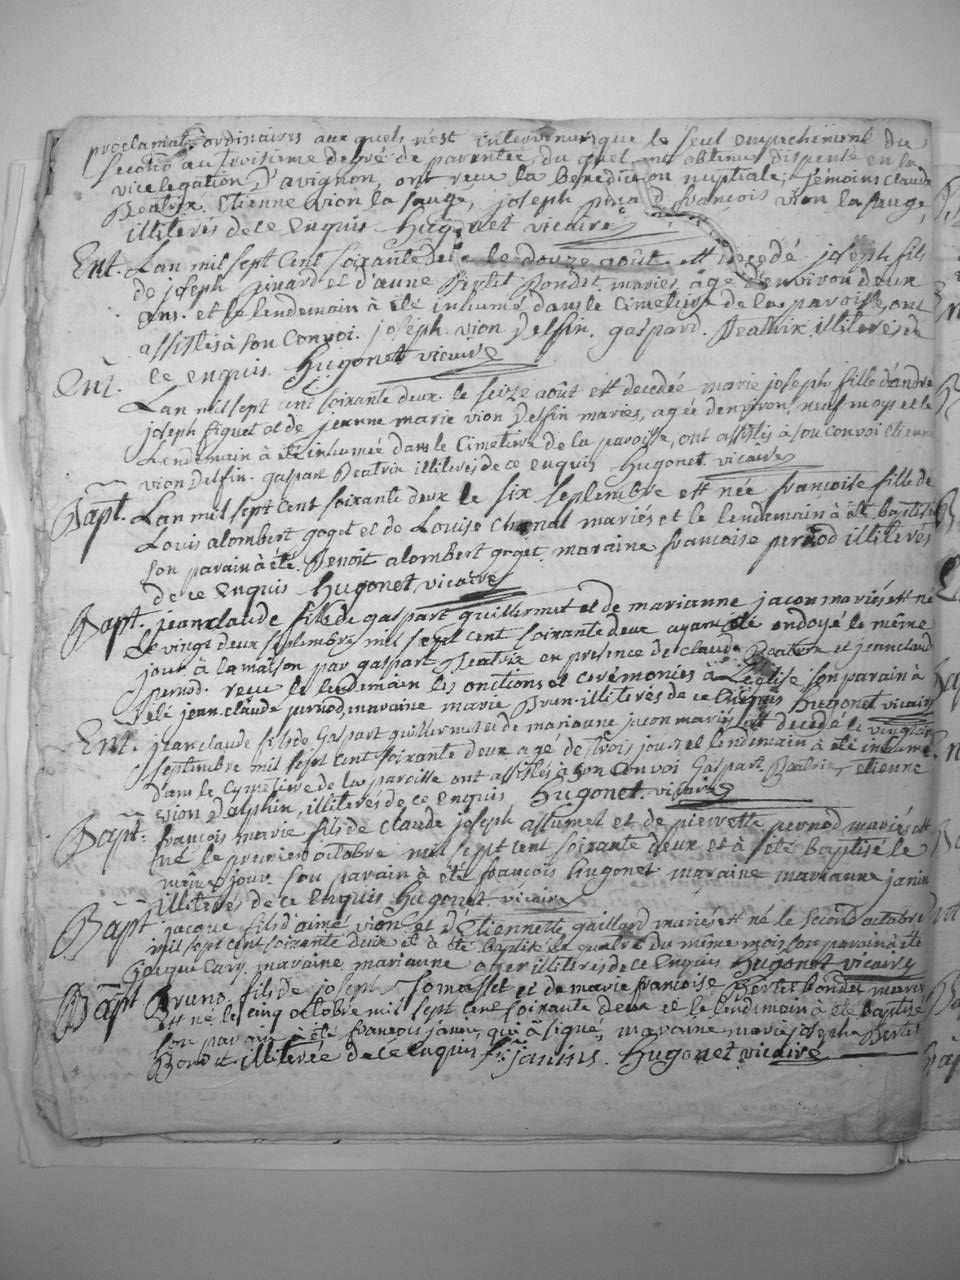 proclamat̃. ordinaires aux quels n'est intervenus que le seul empechement du
second au troisieme degré de parentée, du quel ont obtenu dispense en la
vicelegation d'avignon, ont reçu la benediction nuptiale, témoins Claude
Béatrix. Etienne vion la sauge, joseph pinard françois vion la sauge,
illiterés de ce Enquis Hugonet vicaire
Ent. Lan mil sept cent soixante deux le douze août est decedé joseph fils
de joseph pinard et d'anne Bertet Bondet mariés, agé d'environ deux
ans. et le lendemain à été inhumé dans le Cimetiere de la paroisse, ont
assistés à son convoi. joseph vion Delfin. gaspard. Béatrix illiterés de
ce enquis. Hugonet vicaire
Ent. Lan mil sept cent soixante deux le seize août est decedée marie joseph fille d'andré
joseph figuet et de jeanne marie vion Delfin mariés, agée d'environ neuf moys et le
Lendemain à été inhumée dans le Cimetiere de la paroisse, ont assistés à son Convoi etienne
vion Delfin. gaspar Beatrix illiterés de ce enquis Hugonet. vicaire
Bapt. Lan mil sept cent soixante deux le six septembre est née françoise fille de
Louis alombert goget et de Louise Chenal mariés et le lendemain à été baptisée
son parain à été. Benoit alombert goget maraine francoise pernod illiterés
de ce Enquis Hugonet vicaire
Bapt. jean claude fils de gaspart guillermet et de marianne jacon mariés est né
Le vingt deux septembre mil sept cent soixante deux ayant été endoyé le même
jour à la maison par gaspart Beatrix en presence de claude Beatrix et jean claud
pernod. recu le lendemain les onctions et cerémonies à L'eglise son parain à
été jean claude pernod, maraine marie Brun illiterés de ce Enquis Hugonet vicaire
Ent. jean claude fils de Gaspart guillermet et de marianne jacon mariés est decedé le
septembre mil sept cent soixante deux agé de trois jours et lendemain à été inhumé
dans le Cymetiere de la paroisse ont assistés à son Convoi Gaspart Beatrix, etienne
vion Dalphin, illiterés de ce Enquis Hugonet. vicaire
Bapt. françois marie fils de Claude joseph assumet et de pierrette pernod mariés est
né le premier octobre mil sept cent soixante deux et à été baptisé le
même jour son parain à été françois Hugonet maraine marianne janin
illiterés de ce Enquis Hugonet vicaire
Bapt jacque fils d'aimé vion et d'Etiennette gaillard mariés est né le second octobre
mil sept cent soixante deux et à été baptisé le quatre du même mois son parain à été
jacque Cary maraine marianne illiterés de ce Enquis Hugonet vicaire
Bapt Bruno fils de joseph Tomasset et de marie francoise Bertet bondet mariés
est né le cinq octobre mil sept cent soixante deux et le lendemain à été baptisé
son parain à été françois janin, qui à signé, maraine marie josephe Bertet
Bondet illiterée de ce enquis fr. janins. Hugonet vicaire